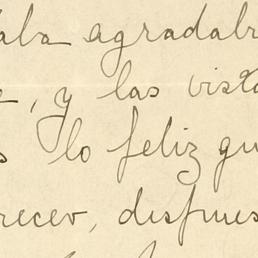 aba agradab
, y las vista
s lo feliz qu
recer, despues